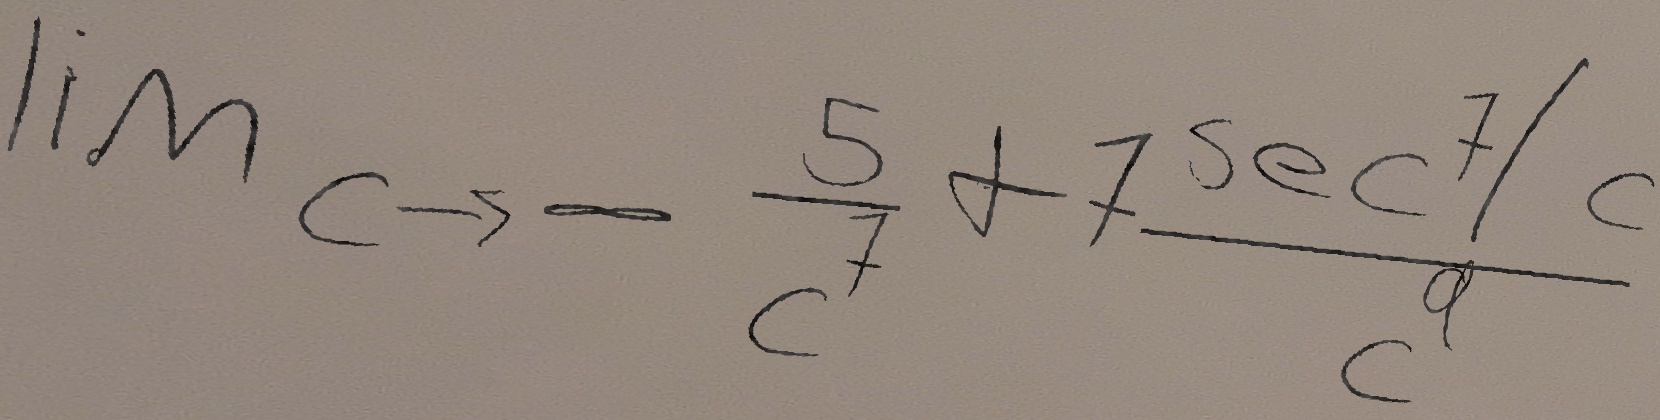 \lim_{c \to \infty} \frac{5}{c^7} + 7\frac{\sec^7/c}{c^9}